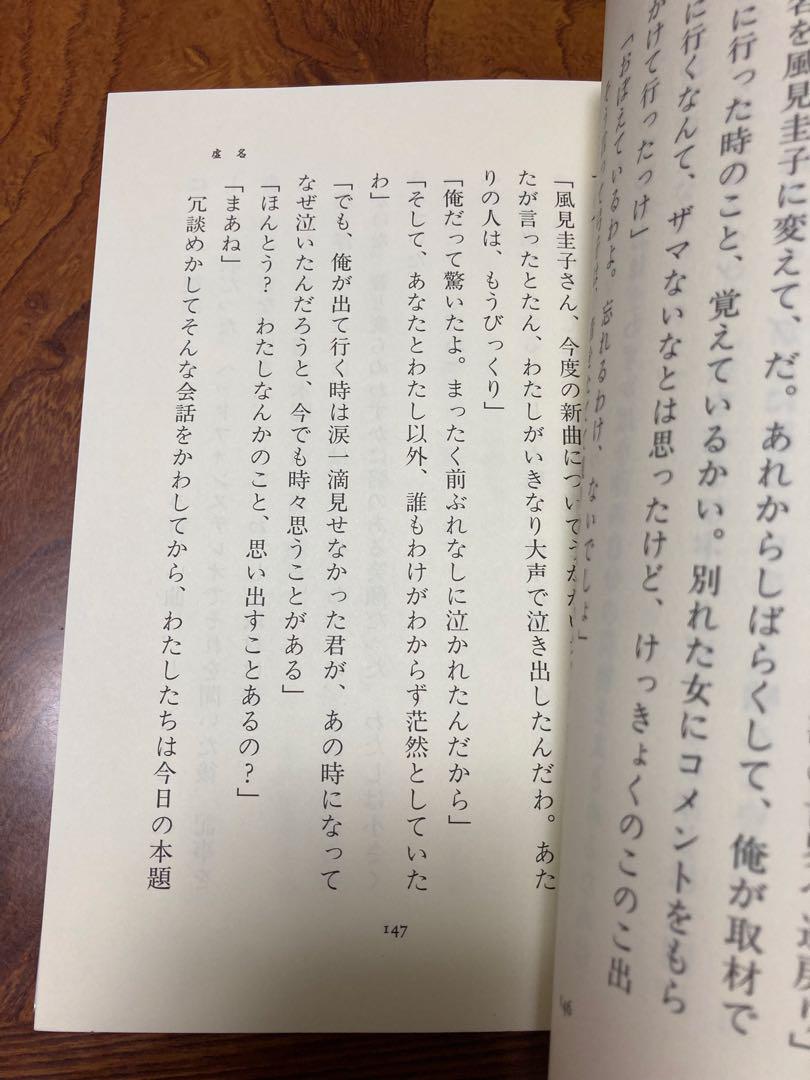 名を風見圭子に変えて、だ。あれからしばらくして、俺が取材で
に行った時のこと、覚えているかい。別れた女にコメントをもら
に行くなんて、ザマないなとは思ったけど、けっきょくのこのこ出
かけて行ったっけ」
「おぼえているわよ。忘れるわけ、ないでしょ」
146
虚名
「風見圭子さん、今度の新曲について
たが言ったとたん、わたしがいきなり大声で泣き出したんだわ。あた
りの人は、もうびっくり」
「俺だって驚いたよ。まったく前ぶれなしに泣かれたんだから」
「そして、あなたとわたし以外、誰もわけがわからず茫然としていた
わ」
「でも、俺が出て行く時は涙一滴見せなかった君が、あの時になって
なぜ泣いたんだろうと、今でも時々思うことがある」
「ほんとう? わたしなんかのこと、思い出すことあるの?」
「まあね」
冗談めかしてそんな会話をかわしてから、わたしたちは今日の本題
147